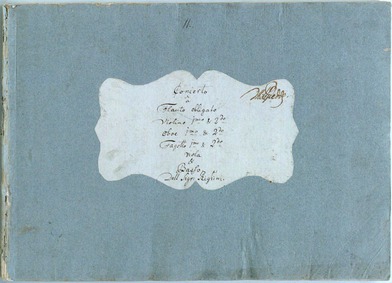 11
Concerto
à
Flauto obligato
Violino 1mo & 2do
Oboe 1mo & 2do
Fagotto 1mo & 2do
Viola
&
Basso
Dell Sigr